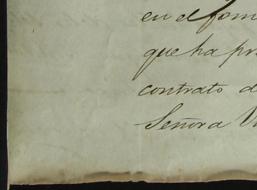 en el fom
que ha pr
contrato d
Señora V